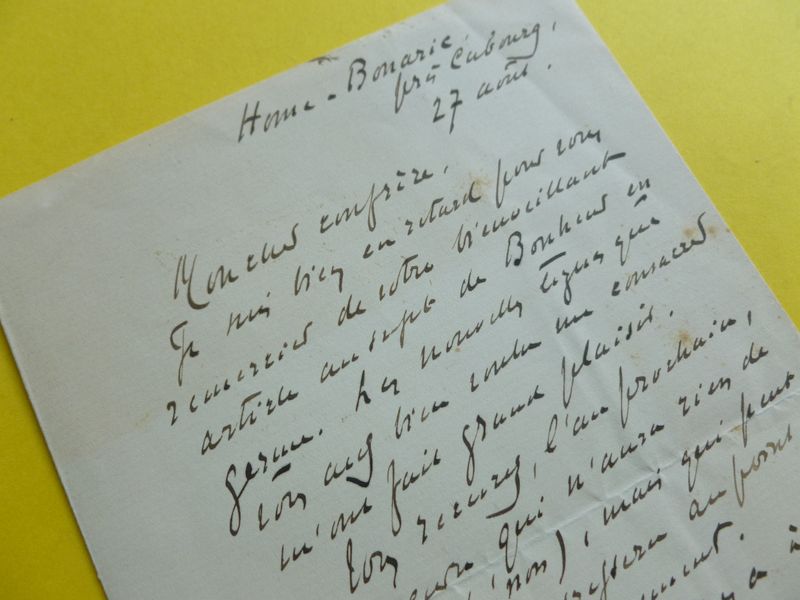 Home-Bonarie,
près Cabourg,
27 août.
Mon cher confrère,
Je suis bien en retard pour vous
remercier de votre bienveillant
article au sujet de Bonheur en
germe. Les nouvelles lignes que
vous avez bien voulu me consacrer
m'ont fait grand plaisir.
Vous recevrez, l'an prochain,
qui n'aura rien de
non), mais qui peut
au point